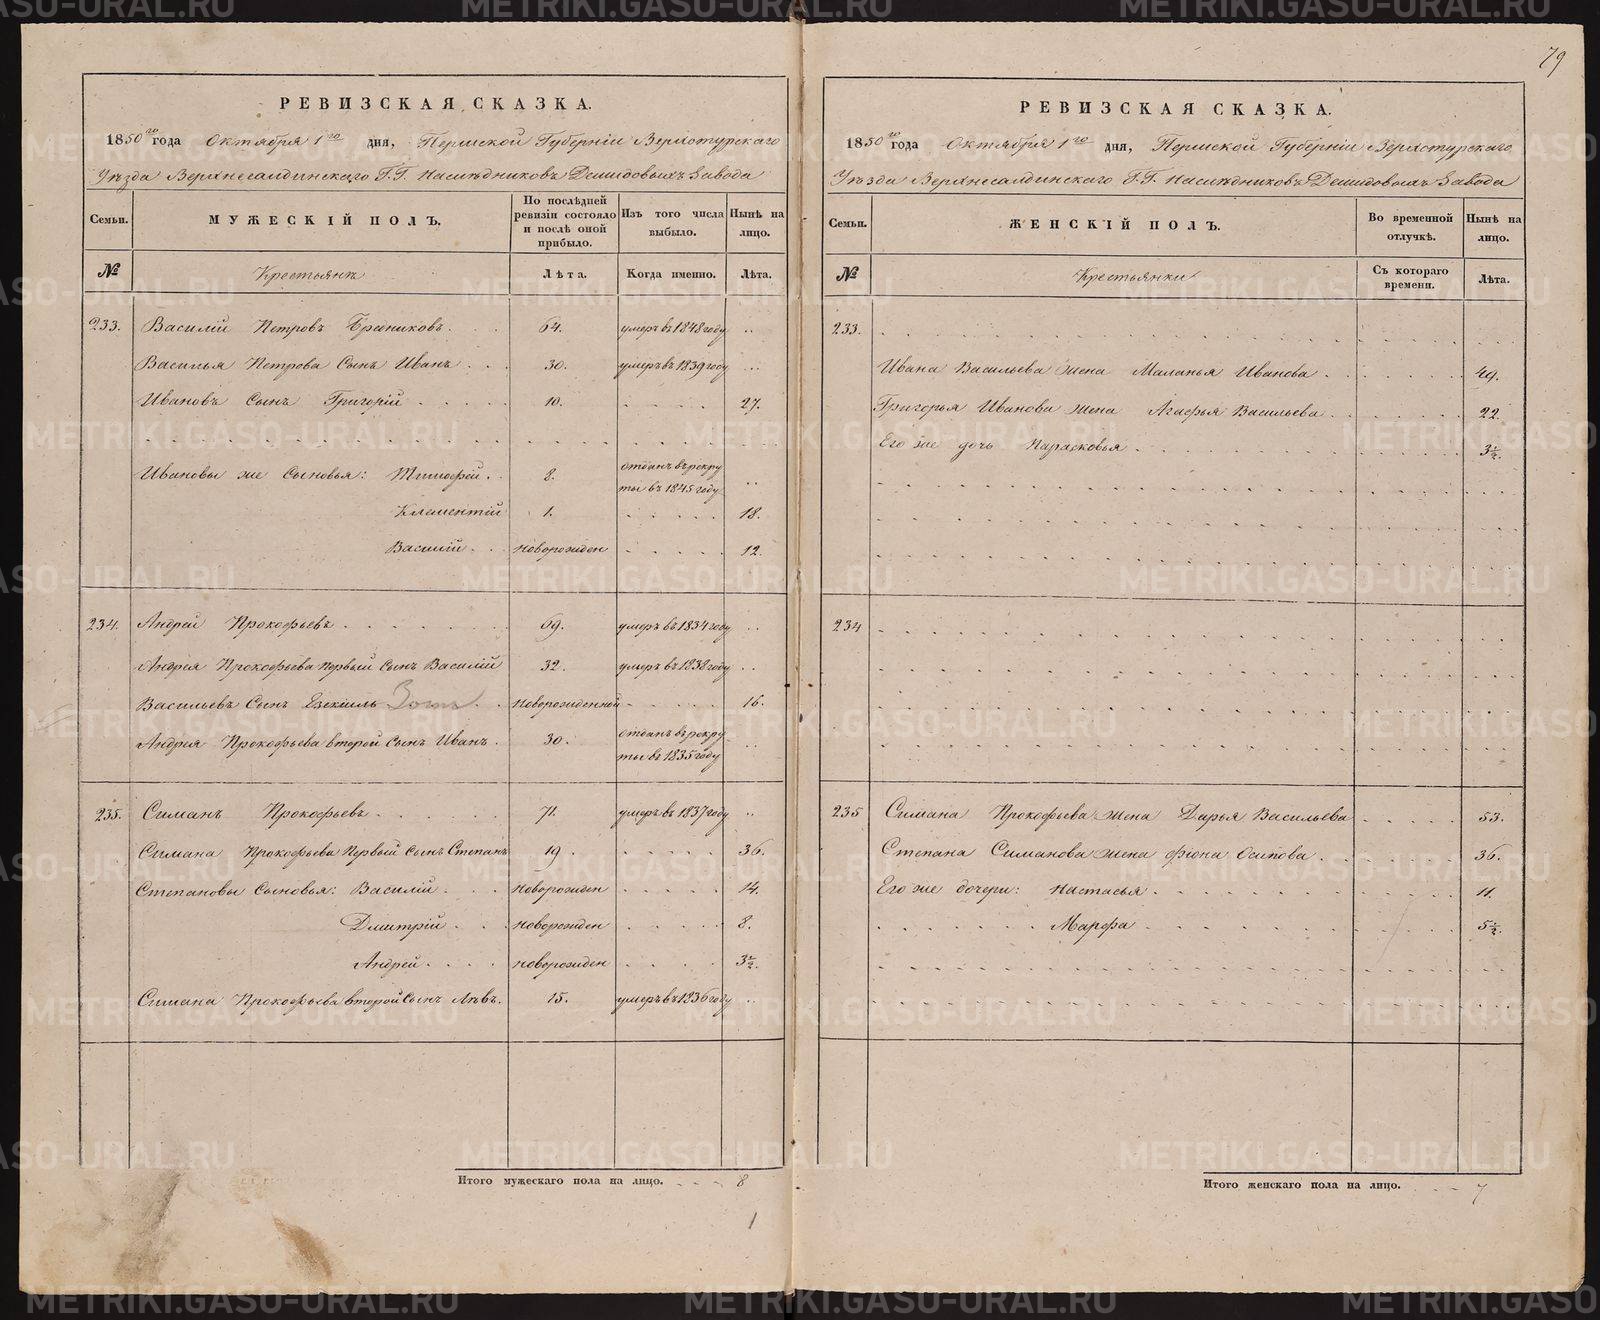 79
РЕВИЗСКАЯ СКАЗКА.
1850го года Октября 1го дня, Пермской Губерніи Верхотурскаго
Уѣзда Верхнесалдинскаго Г.Г. Наслѣдниковъ Демидовыхъ Завода
Семьи.
МУЖЕСКІЙ ПОЛЪ.
По послѣдней ревизіи состояло и послѣ оной прибыло.
Изъ того числа выбыло.
Нынѣ на лицо.
№ Крестьянъ Лѣта. Когда именно. Лѣта.
233. Василій Петровъ 64. умеръ въ 1848 году
Василья Петрова Сынъ Иванъ 30. умеръ въ 1839 году
Ивановъ Сынъ Григорій 10. 27.
Ивановы же Сыновья: Тимофей 8. отданъ въ рекру
ты въ 1845 году
Клементій 1. 18.
Василій новорожден 12.
234. Андрей Прокофьевъ 69. умеръ въ 1834 году
Андрея Прокофьева первый Сынъ Василій 32. умеръ въ 1838 году
Васильевъ Сынъ Езекіиль новорожденной 16.
Андрея Прокофьева второй Сынъ Иванъ 30. отданъ въ рекру
ты въ 1835 году
235. Симанъ Прокофьевъ 71. умеръ въ 1837 году
Симана Прокофьева Первый Сынъ Степанъ 19. 36.
Степановы Сыновья: Василій новорожден 14.
Дмитрій новорожден 8.
Андрей новорожден 3½.
Симана Прокофьева второй Сынъ Львъ 15. умеръ въ 1836 году
Итого мужескаго пола на лицо. 8
1
РЕВИЗСКАЯ СКАЗКА.
1850го года Октября 1го дня, Пермской Губерніи Верхотурскаго
Уѣзда Верхнесалдинскаго Г.Г. Наслѣдниковъ Демидовыхъ Завода
Семьи.
ЖЕНСКІЙ ПОЛЪ.
Во временной отлучкѣ.
Нынѣ на лицо.
№ Крестьянки Съ котораго времени. Лѣта.
233.
Ивана Васильева жена Маланья Иванова 49.
Григорья Иванова жена Агафья Васильева 22.
Его же дочь Парасковья 3½.
234
235 Симана Прокофьева жена Дарья Васильева 53.
Степана Симанова жена Фіона Осипова 36.
Его же дочери: Настасья 11.
Марфа 5½.
Итого женскаго пола на лицо. 7
METRIKI.GASO-URAL.RU